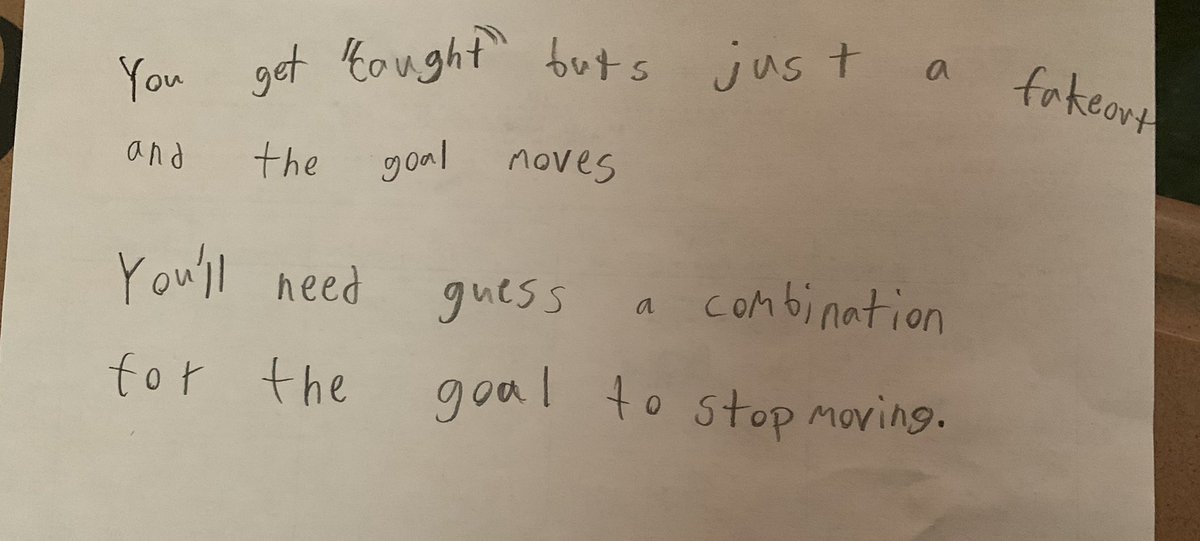 You get "caught" buts just a fakeout
and the goal moves
You'll need guess a combination
for the goal to stop moving.